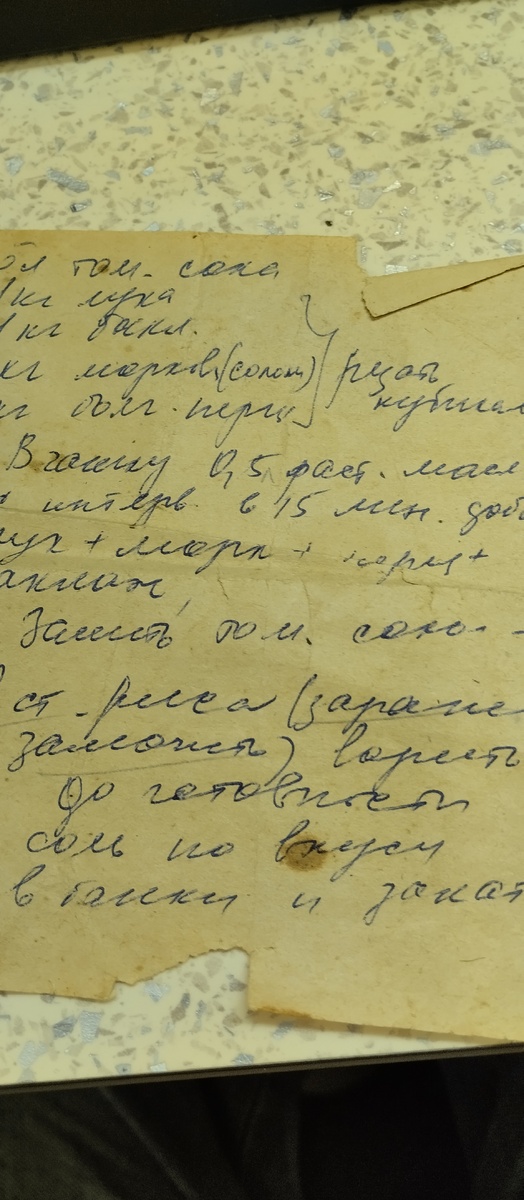 л том. сока
1 кг лука
1 кг бакл.
кг моркови (солом) резать
кг болг. перц кубикам
В чашку 0,5 раст. масл
интерв. в 15 мин. доб
лук + морк + перц +
аклаж
Залить том. соком
ст. риса (заране
замочить) варить
до готовности
соль по вкусу
в банки и закат